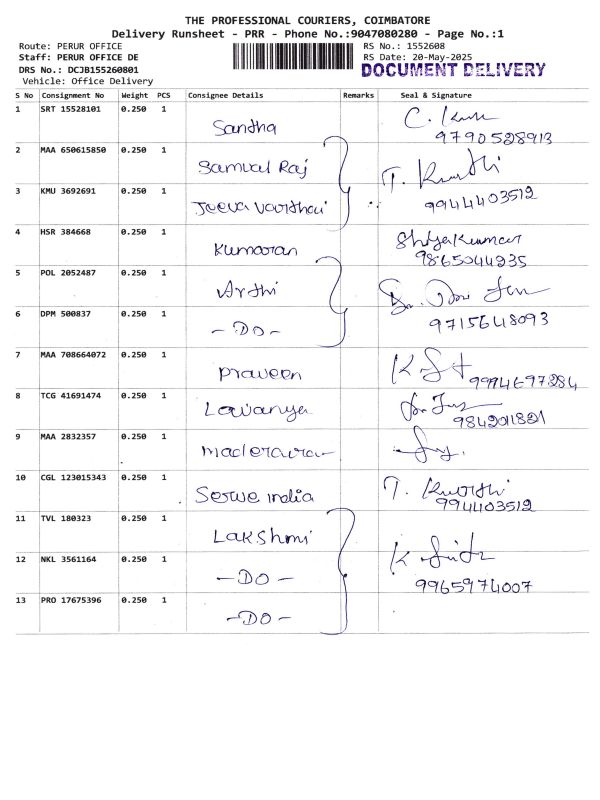 THE PROFESSIONAL COURIERS, COIMBATORE
Delivery Runsheet - PRR - Phone No.:9047080280 - Page No.:1
Route: PERUR OFFICE
RS No.: 1552608
Staff: PERUR OFFICE DE
RS Date: 20-May-2025
DRS No.: DCJB155260801
DOCUMENT DELIVERY
Vehicle: Office Delivery
S No Consignment No Weight PCS Consignee Details Remarks Seal & Signature
1 SRT 15528101 0.250 1 Sandha
9790528913
2 MAA 650615850 0.250 1 Samual Raj
3 KMU 3692691 0.250 1 Jeeva
9944403512
4 HSR 384668 0.250 1 Kumaran
9865044935
5 POL 2052487 0.250 1 Arthi
6 DPM 500837 0.250 1 -DO-
9715648093
7 MAA 708664072 0.250 1 Praveen
9994697284
8 TCG 41691474 0.250 1 Lavanya
9 MAA 2832357 0.250 1
10 CGL 123015343 0.250 1 Serve india
994403512
11 TVL 180323 0.250 1 Lakshmi
12 NKL 3561164 0.250 1 -DO-
9965974007
13 PRO 17675396 0.250 1 -DO-